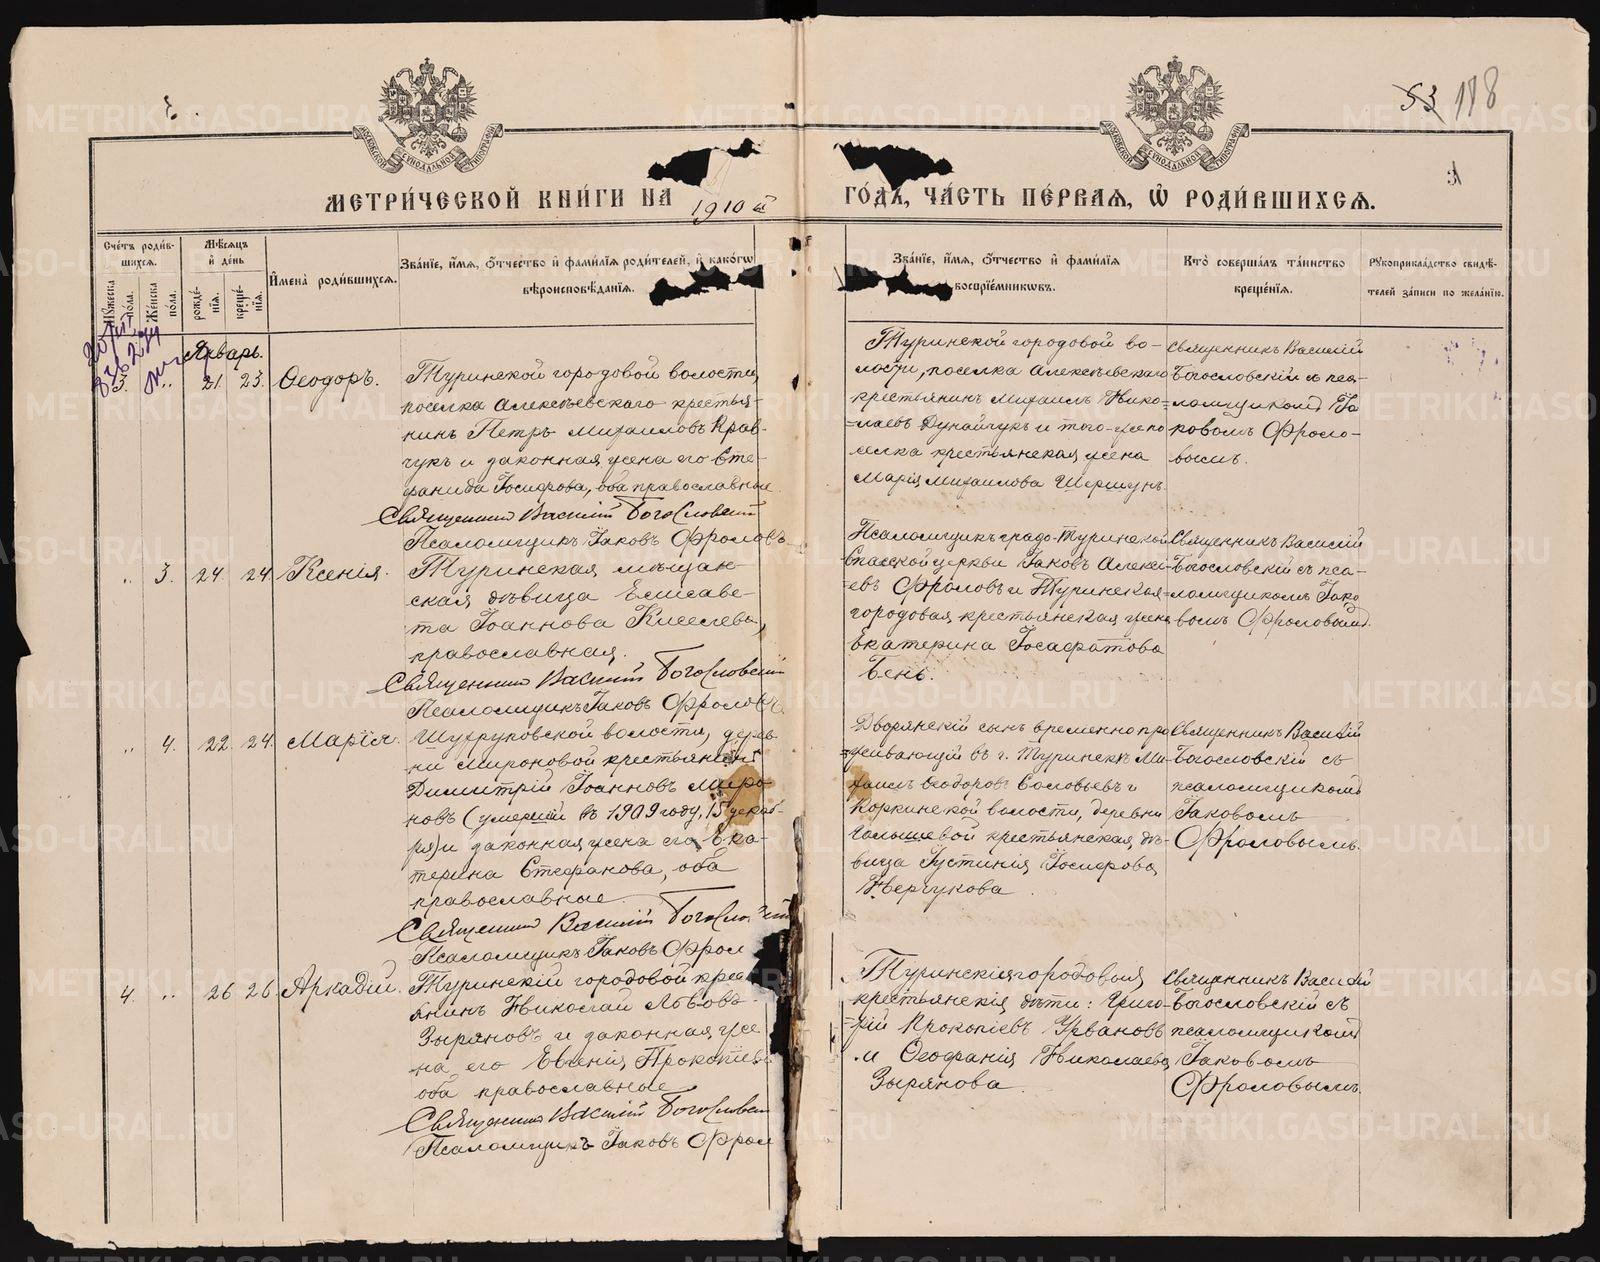 53 118
МЕТРИ́ЧЕСКОЙ КНИ́ГИ НА 1910 й ГО́ДЪ, ЧА́СТЬ ПЕ́РВАЯ, Ѡ҆ РОДИ́ВШИХСЯ.
Сче́тъ роди́вшихся.
Мꙋ́жеска по́ла.
Же́нска по́ла.
Мѣ́сяцъ и҆ де́нь
рожде́нїя.
креще́нїя.
И҆мена̀ роди́вшихся.
Зва́нїе, и҆́мя, ѻ҆́тчество и҆ фами́лїя роди́телей, и҆ како́гѡ
вѣроисповѣ́данїя.
Зва́нїе, и҆́мя, ѻ҆́тчество и҆ фами́лїя
воспрїе́мниковъ.
Кто̀ соверша́лъ та́инство
креще́нїя.
Рꙋкоприкла́дство свидѣ́телей за́писи по жела́нїю.
Январь.
3. „ 21. 23. Ѳеодоръ.
Туринской городовой волости,
поселка Алексѣевскаго крестья-
нинъ Петръ Михаиловъ Крав-
чукъ и законная жена его Сте-
фанида Іосифова, оба православные.
Священникъ Василій Богословскій
Псаломщикъ Іаковъ Фроловъ
Туринской городовой во-
лости, поселка Алексѣевскаго
крестьянинъ Михаилъ Нико-
лаевъ Дунайчукъ и того-же по
селка крестьянская жена
Марія Михаилова Шершунъ.
Священникъ Василій
Богословскій съ пса-
ломщикомъ Іа
ковомъ Фроло-
вымъ.
„ 3. 24. 24. Ксенія.
Туринская мѣщан-
ская дѣвица Елисаве-
та Іоаннова Киселева,
православная.
Священникъ Василій Богословскій
Псаломщикъ Іаковъ Фроловъ
Псаломщикъ градо-Туринской
Спасской церкви Іаковъ Алексі-
евъ Фроловъ и Туринская
городовая крестьянская жена
Екатерина Іосафатова
Бень.
Священникъ Василій
Богословскій съ пса-
ломщикомъ Іако
вомъ Фроловымъ.
„ 4. 22. 24. Марія.
Шухруповской волости, дерев-
ни Мироновой крестьянинъ
Димитрій Іоанновъ Миро
новъ (умершій въ 1909 году, 15 декаб-
ря) и законная жена его Ека-
терина Стефанова, оба
православные.
Священникъ Василій Богословскій
Псаломщикъ Іаковъ Фрол
Дворянскій сынъ временно про
живающій въ г. Туринскѣ Ми-
хаилъ Ѳеодоровъ Соловьевъ и
Коркинской волости, деревни
Галышевой крестьянская дѣ-
вица Іустинія Іосифова
Священникъ Василій
Богословскій съ
псаломщикомъ
Іаковомъ
Фроловымъ.
4. „ 26 26. Аркадій.
Туринскій городовой крес
янинъ Николай Львовъ
Зыряновъ и законная же
на его Евгенія Прокопіев
оба православные
Священникъ Василій Богословск
Псаломщикъ Іаковъ Фрол
Туринскія городовыя
крестьянскія дѣти: Григо-
рій Прокопіевъ Урвановъ
и Ѳеофанія Николаева
Зырянова.
Священникъ Василій
Богословскій съ
псаломщикомъ
Іаковомъ
Фроловымъ.
METRIKI.GASO-URAL.RU